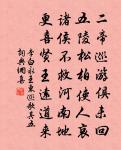 二帝巡游俱未回
五陵松柏使人哀
诸侯不救河南地
更喜贤王远道来
李白永王东巡歌其五
词典网喜